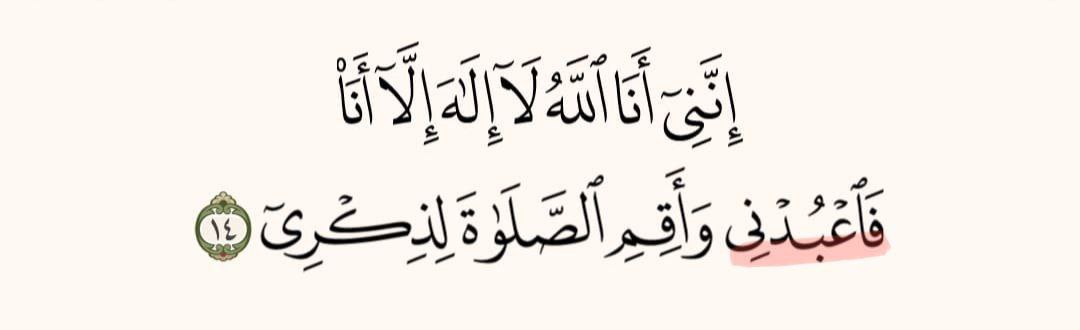 إِنَّنِىٓ أَنَا ٱللَّهُ لَآ إِلَٰهَ إِلَّآ أَنَا۠
فَٱعۡبُدۡنِى وَأَقِمِ ٱلصَّلَوٰةَ لِذِكۡرِىٓ ١٤